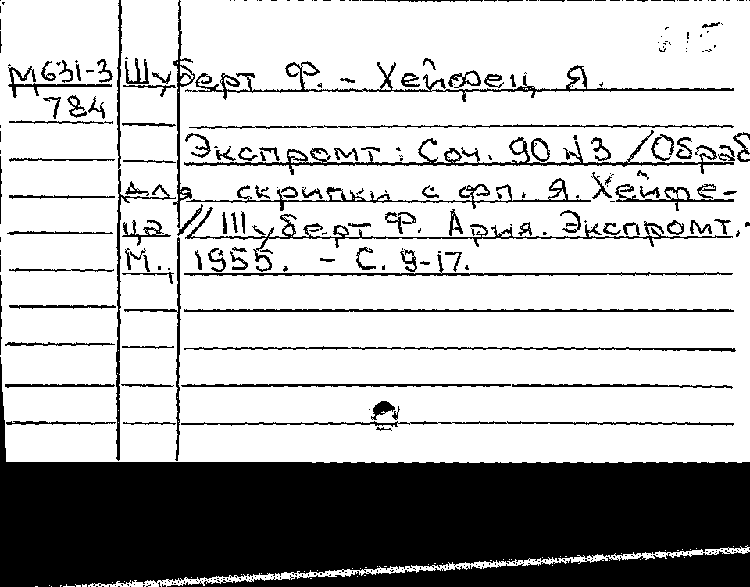 615
М631-3 Шуберт Ф. - Хейфец Я.
784
Экспромт: Соч. 90 №3 /Обраб
для скрипки с фп. Я. Хейфе-
ца // Шуберт Ф. Ария. Экспромт.-
М., 1955. - С. 9-17.